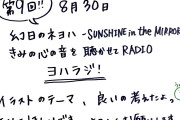 第9回!! 8月30日
幻日のヨハネ -SUNSHINE in the MIRROR-
きみの心の音を聴かせて RADIO
ヨハラジ!
イラストのテーマ、良いの考えたよ。